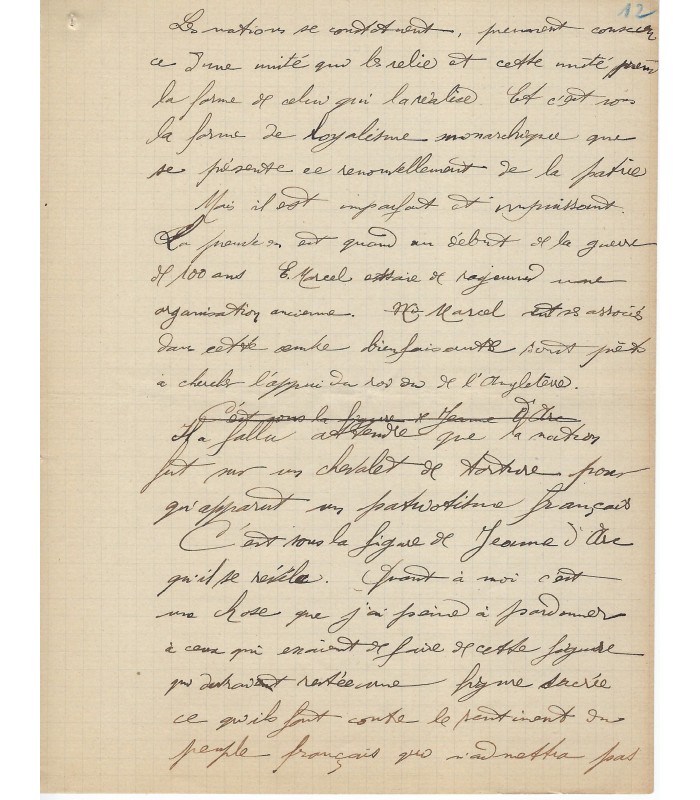 12
Les nations se constituent, prennent conscien
ce d'une unité qui les relie et cette unité prend
la forme de celui qui la réalise. Et c'est sous
la forme de royalisme monarchique que
se présente ce renouvellement de la patrie
Mais il est imparfait et impuissant.
La preuve en est quand au début de la guerre
de 100 ans E. Marcel essaie de rajeunir une
organisation ancienne. Marcel et ses associés
dans cette œuvre bienfaisante sont prêts
à chercher l'appui du roi de l'Angleterre.
C'est sous la figure de Jeanne d'Arc
Il a fallu attendre que la nation
fut sur un chevalet de torture pour
qu'apparut un patriotisme français
C'est sous la figure de Jeanne d'Arc
qu'il se révèle. Quant à moi c'est
une chose que j'ai peine à pardonner
à ceux qui essaient de faire de cette figure
qui devrait rester une figure sacrée
ce qu'ils font contre le sentiment du
peuple français qui n'admettra pas